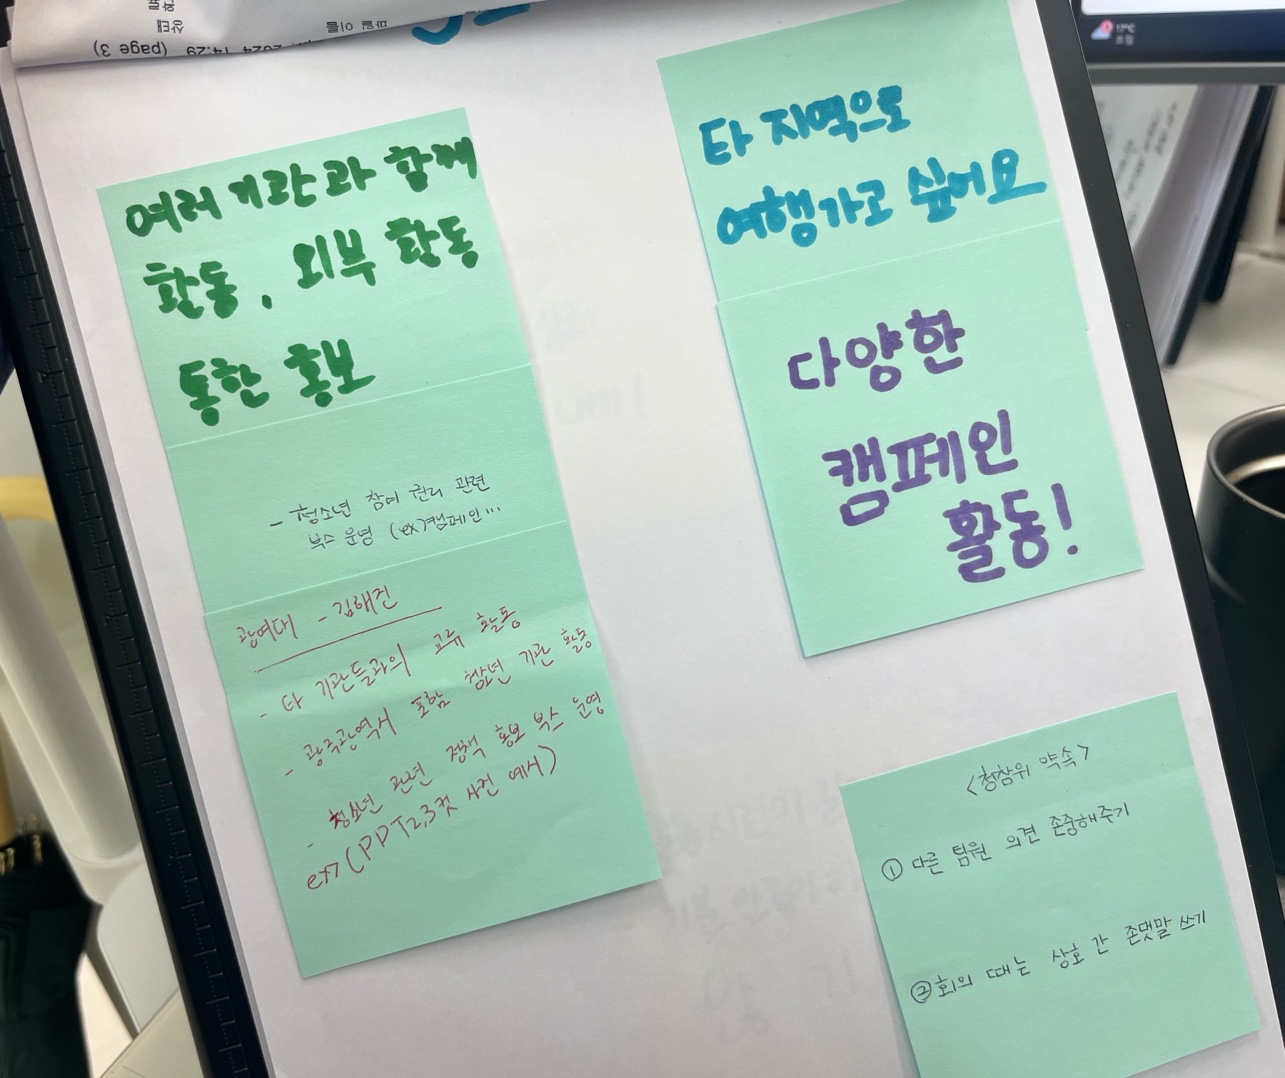 여러 기관과 함께
활동, 외부 활동
통한 홍보
- 청소년 참여 권리 관련
부스 운영 (ex)캠페인...
광여대 - 김해진
- 타 기관들과의 교류 활동
- 광주광역시 포함 청소년 기관 활동
- 청소년 관련 정책 홍보 부스 운영
ex) (PPT2,3컷 사진 에서)
타 지역으로
여행가고 싶어요
다양한
캠페인
활동!
<청참위 약속>
① 다른 팀원 의견 존중해주기
② 회의 때는 상호 간 존댓말 쓰기
파일 이름
2024 14:29 (page 3)
상태
17°C